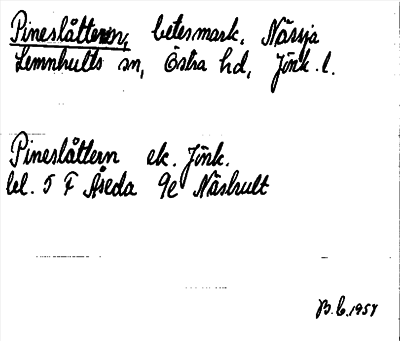 Pineslåttern, betesmark, Nässja
Lemnhults sn, Östra hd, Jönk. l.
Pineslåttern ek. Jönk.
bl. 5 F Åseda 9e Näshult
B.L. 1957